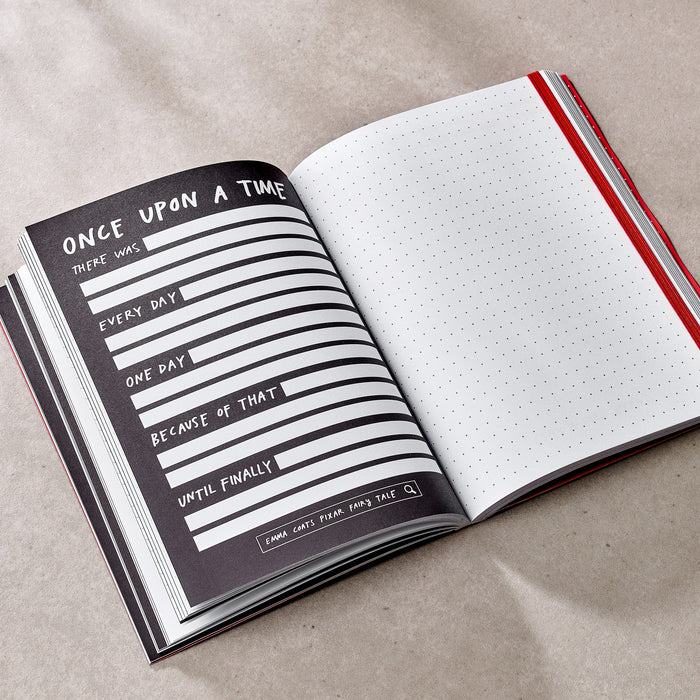 ONCE UPON A TIME
THERE WAS
EVERY DAY
ONE DAY
BECAUSE OF THAT
UNTIL FINALLY
EMMA COATS PIXAR FAIRY TALE